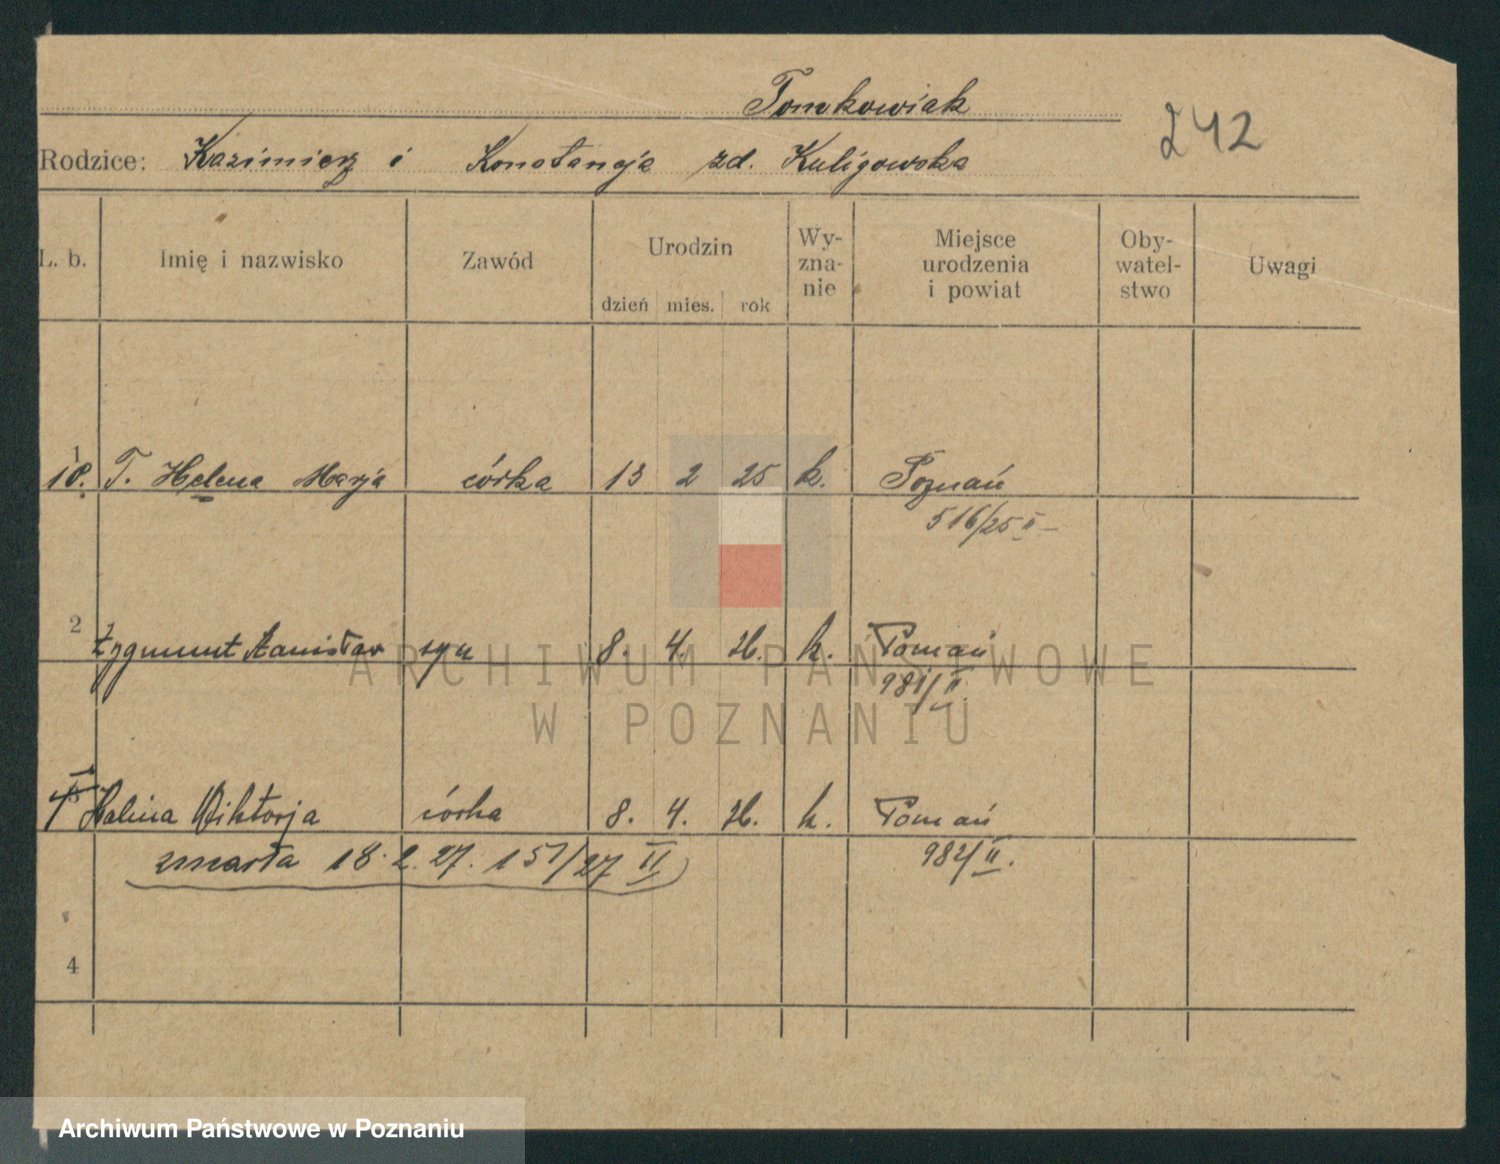 Tomkowiak
242
Rodzice: Kazimierz i Konstancja zd. Kuligowska
L. b. Imię i nazwisko Zawód Urodzin dzień mies. rok Wy-zna-nie Miejsce urodzenia i powiat Oby-watel-stwo Uwagi
1
10. T. Helena Marja córka 13 2 25 k. Poznań
516/25 II
2 Zygmunt Stanisław syn 8. 4. 26. k. Poznań
981/II
Halina Wiktorja córka 8. 4. 26. k. Poznań
zmarła 18. 2. 27. 151/27 II 982/II.
4
ARCHIWUM PAŃSTWOWE
W POZNANIU
Archiwum Państwowe w Poznaniu